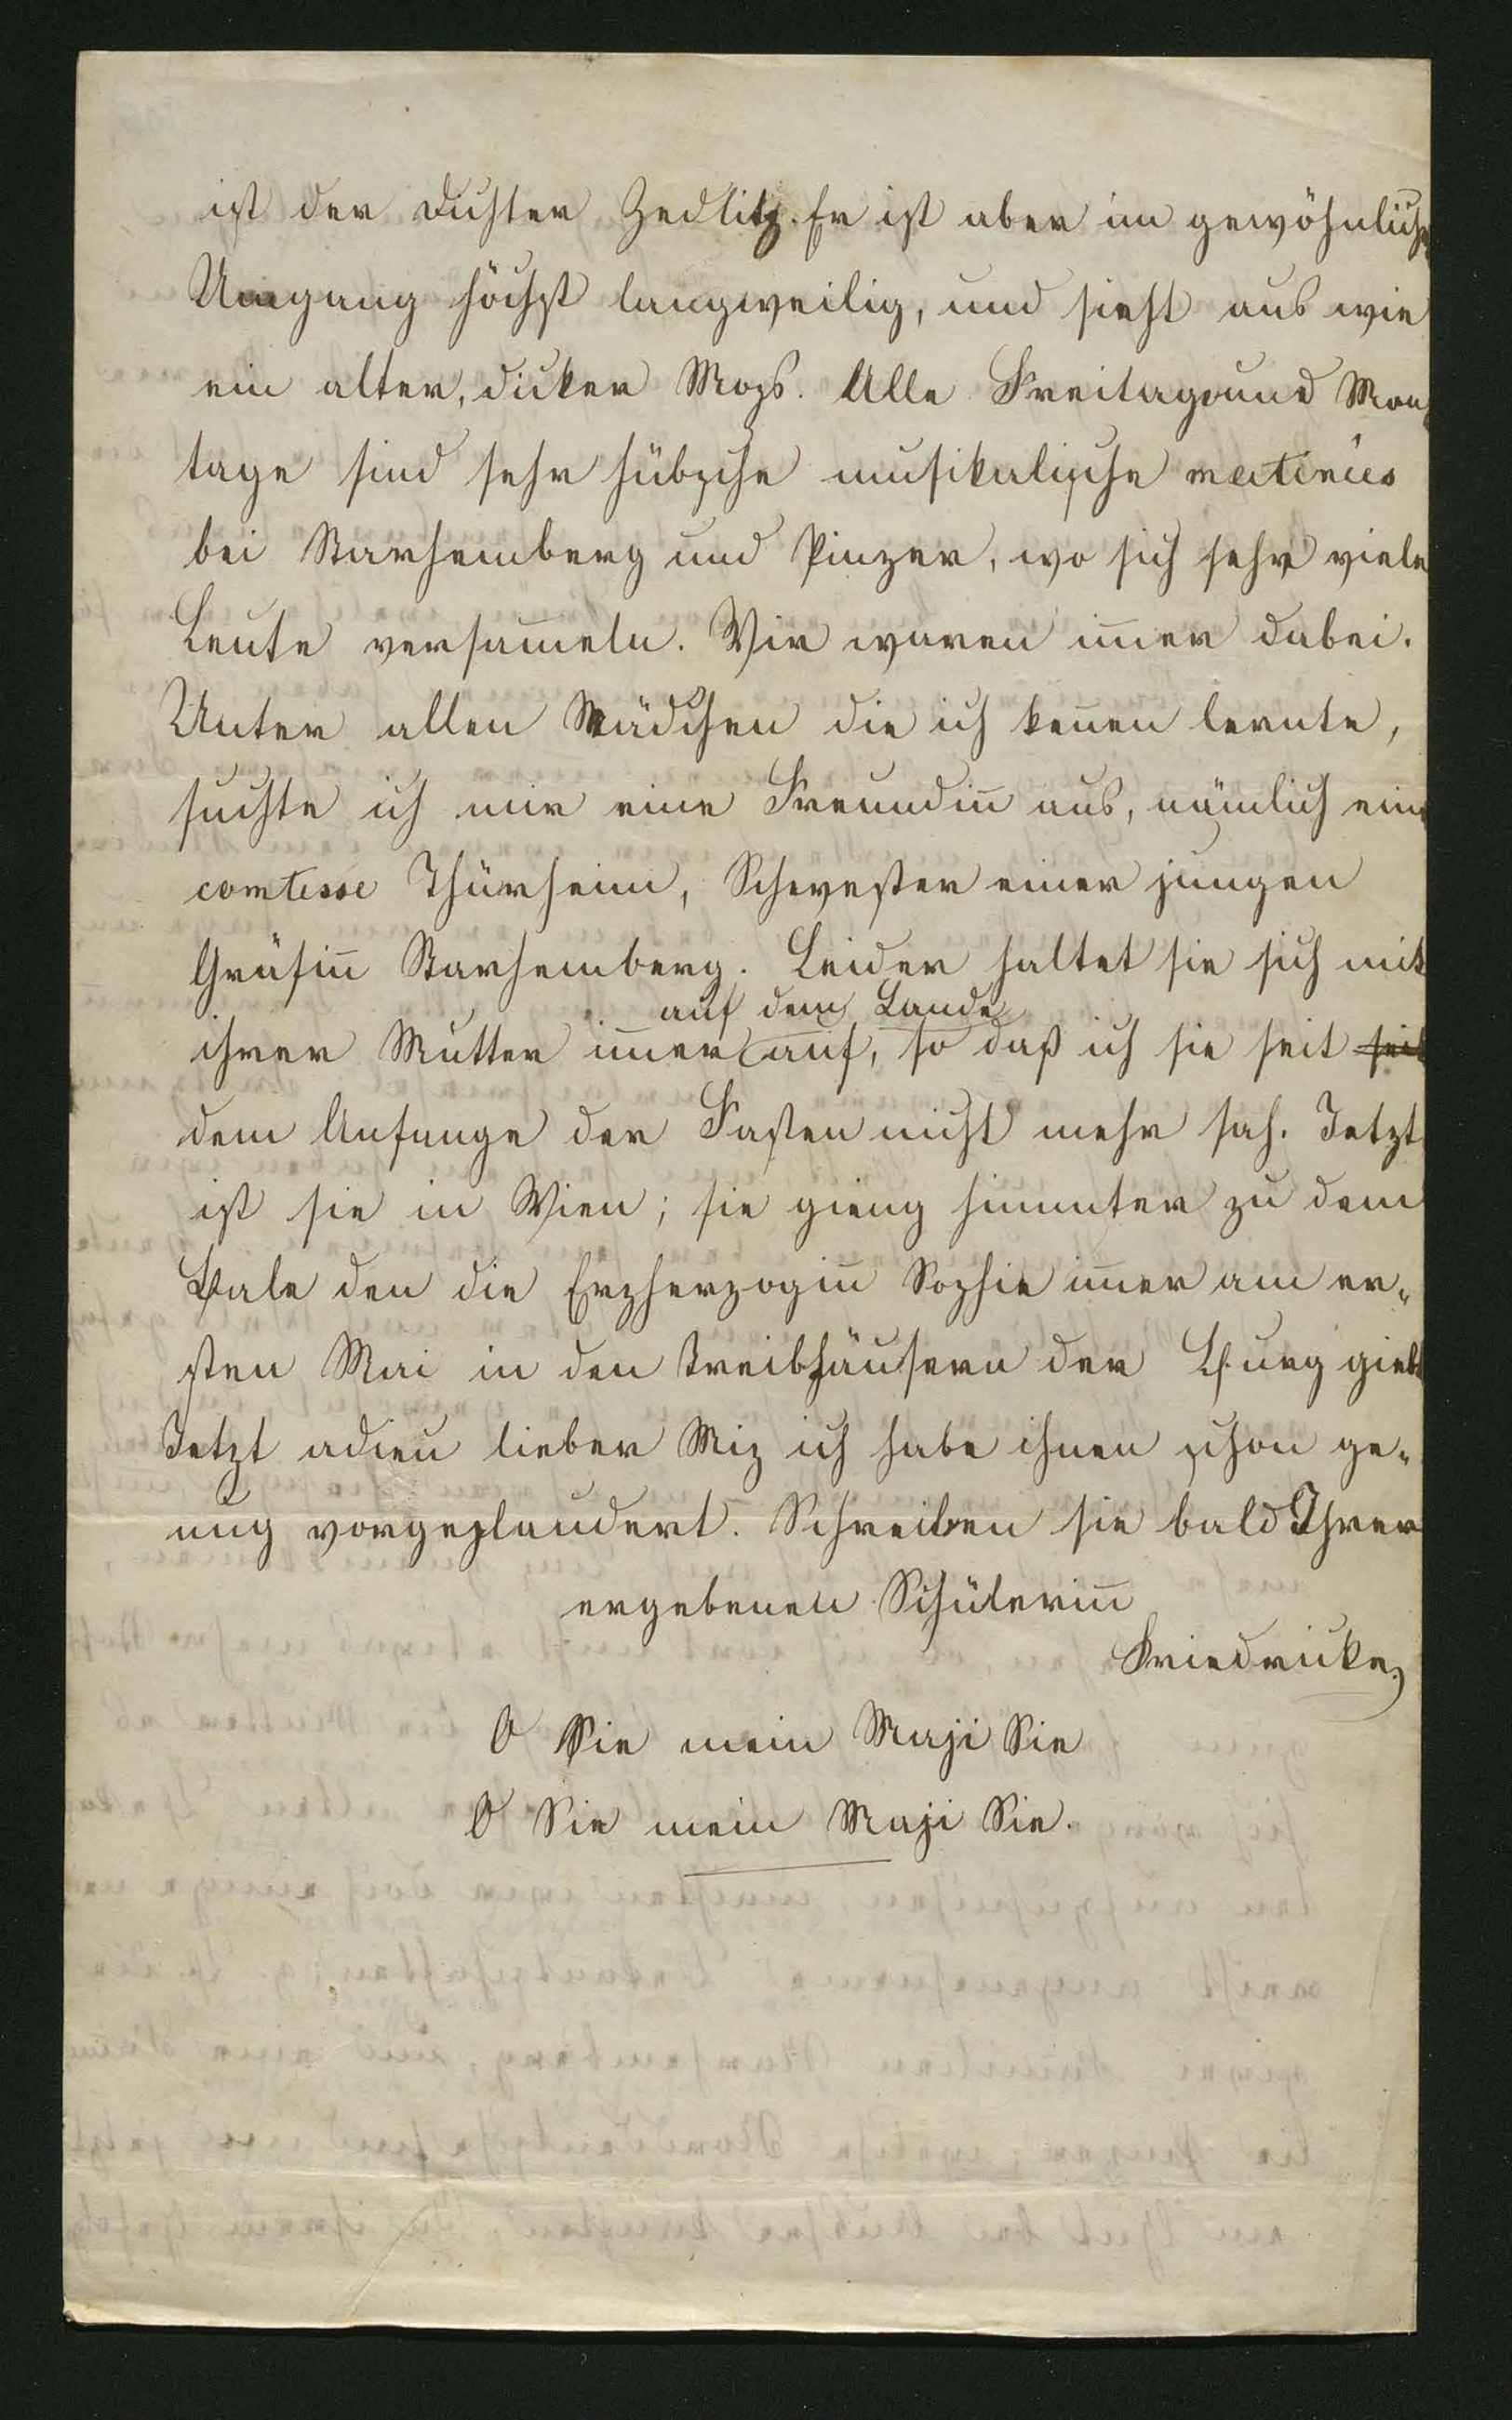 ist der Dichter Zedlitz. Er ist aber im gewöhnlich
Umgang höchst langweilig, und sieht aus wie
ein alter, dicker Mops. Alle Freitag und Mon-
tage sind sehr hübsche musikalische matinées
bei Starhemberg und Pinzer, wo sich sehr viele
Leute versam̅eln. Wir waren im̅er dabei.
Unter allen Mädchen die ich ken̅en lernte,
suchte ich mir eine Freundin̅ aus, nämlich eine
comtesse Thürheim, Schwester einer jungen
Gräfin̅ Starhemberg. Leider haltet sie sich mit
auf dem Lande
ihrer Mutter im̅er auf, so daß ich sie seit seit
dem Anfange der Fasten nicht mehr sah. Jetzt
ist sie in Wien; sie gieng hinunter zu dem
Bale den die Erzherzogin̅ Sophie im̅er am er-
sten Mai in den Treibhäusern der Burg giebt
Jetzt adieu lieber Miz ich habe ihnen schon ge-
nug vorgeplaudert. Schreiben sie bald Ihrer
ergebenen Schülerin̅
Friedricke
O Sie mein Maji Sie
O Sie mein Maji Sie.